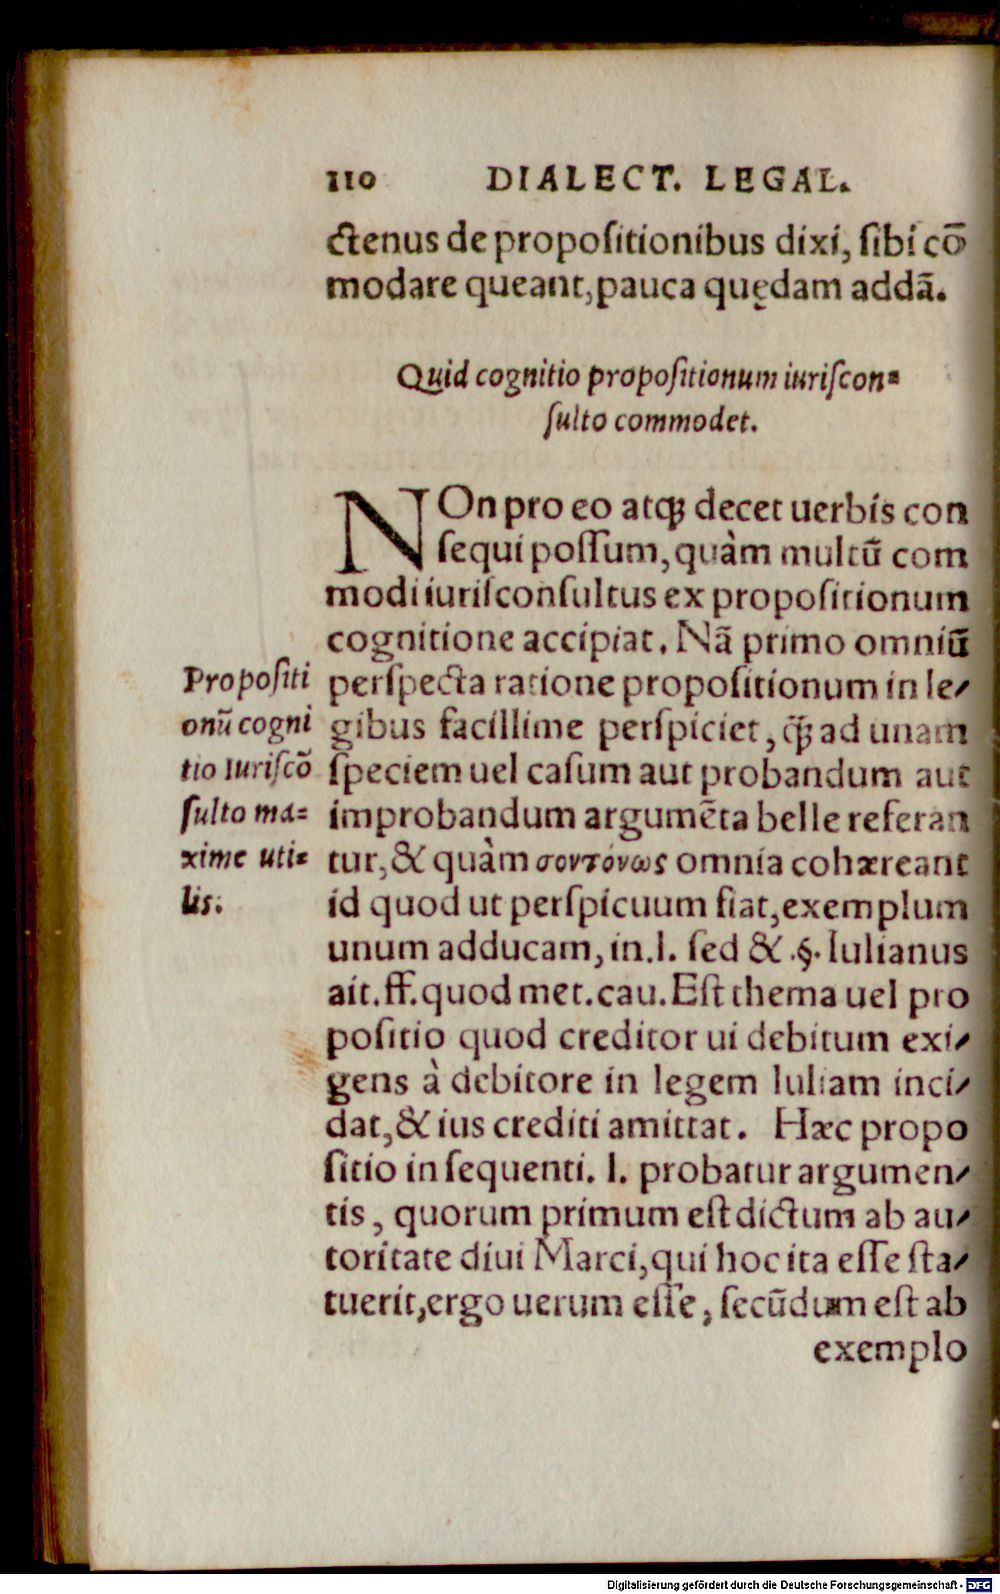 110 DIALECT. LEGAL.
ctenus de propoſitionibus dixi, ſibi cō
modare queant, pauca quędam addā.
Quid cognitio propoſitionum iuriſcon⸗
ſulto commodet.
NOn pro eo atqꝫ decet uerbis con
ſequi poſſum, quàm multū com
modi iuriſconſultus ex propoſitionum
cognitione accipiat. Nā primo omniū
perſpecta ratione propoſitionum in le⸗
gibus facillime perſpiciet, q̃ꝫ ad unam
ſpeciem uel caſum aut probandum aut
improbandum argumēta belle referan
tur, & quàm σοντόνως omnia cohæreant
id quod ut perſpicuum fiat, exemplum
unum adducam, in.l. ſed & .§. Iulianus
ait. ff. quod met. cau. Eſt thema uel pro
poſitio quod creditor ui debitum exi⸗
gens à debitore in legem Iuliam inci⸗
dat, & ius crediti amittat. Hæc propo
ſitio in ſequenti. l. probatur argumen⸗
tis, quorum primum eſt dictum ab au⸗
toritate diui Marci, qui hoc ita eſſe ſta⸗
tuerit, ergo uerum eſſe, ſecūdum eſt ab
exemplo
Propoſiti
onū cogni
tio Iuriſcō
ſulto ma⸗
xime uti⸗
lis.
Digitalisierung gefördert durch die Deutsche Forschungsgemeinschaft - DFG